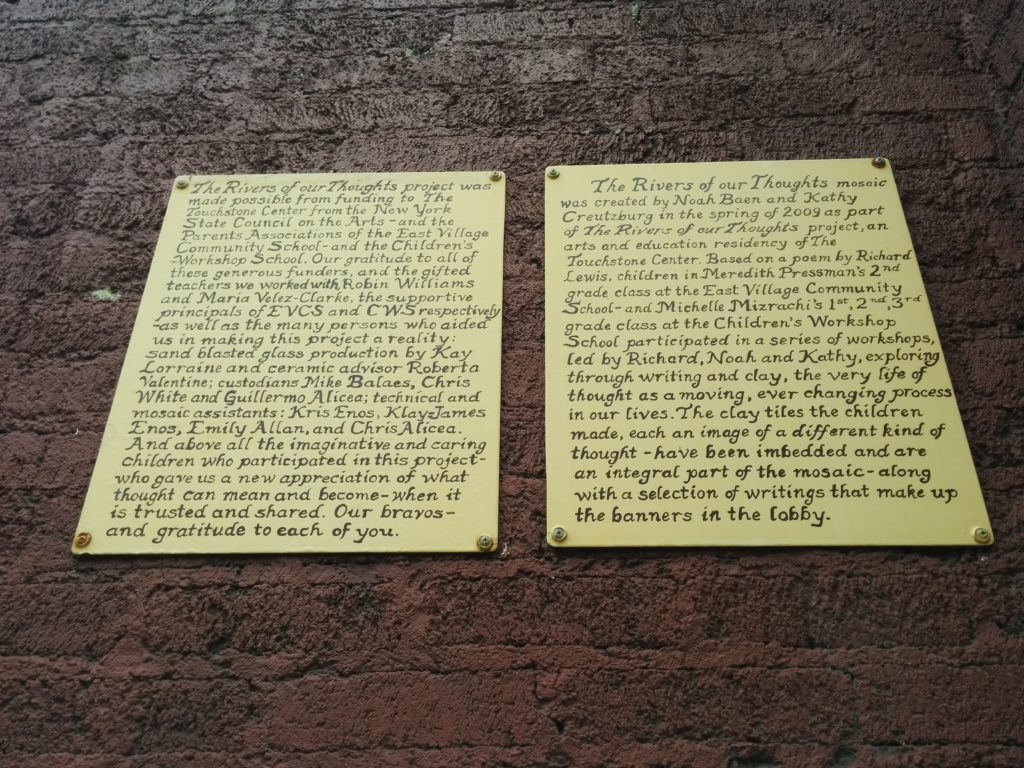 The Rivers of our Thoughts project was
made possible from funding to The
Touchstone Center from the New York
State Council on the Arts - and the
Parents Associations of the East Village
Community School - and the Children's
Workshop School. Our gratitude to all of
these generous funders, and the gifted
teachers we worked with, Robin Williams
and Maria Velez-Clarke, the supportive
principals of EVCS and CWS respectively
- as well as the many persons who aided
us in making this project a reality:
sand blasted glass production by Kay
Lorraine and ceramic advisor Roberta
Valentine; custodians Mike Balaes, Chris
White and Guillermo Alicea; technical and
mosaic assistants: Kris Enos, Klay-James
Enos, Emily Allan, and Chris Alicea.
And above all the imaginative and caring
children who participated in this project-
who gave us a new appreciation of what
thought can mean and become - when it
is trusted and shared. Our bravos-
and gratitude to each of you.
The Rivers of our Thoughts mosaic
was created by Noah Baen and Kathy
Creutzburg in the spring of 2009 as part
of The Rivers of our Thoughts project, an
arts and education residency of The
Touchstone Center. Based on a poem by Richard
Lewis, children in Meredith Pressman's 2nd
grade class at the East Village Community
School - and Michelle Mizrachi's 1st, 2nd, 3rd
grade class at the Children's Workshop
School participated in a series of workshops,
led by Richard, Noah and Kathy, exploring
through writing and clay, the very life of
thought as a moving, ever changing process
in our lives. The clay tiles the children
made, each an image of a different kind of
thought - have been imbedded and are
an integral part of the mosaic - along
with a selection of writings that make up
the banners in the lobby.